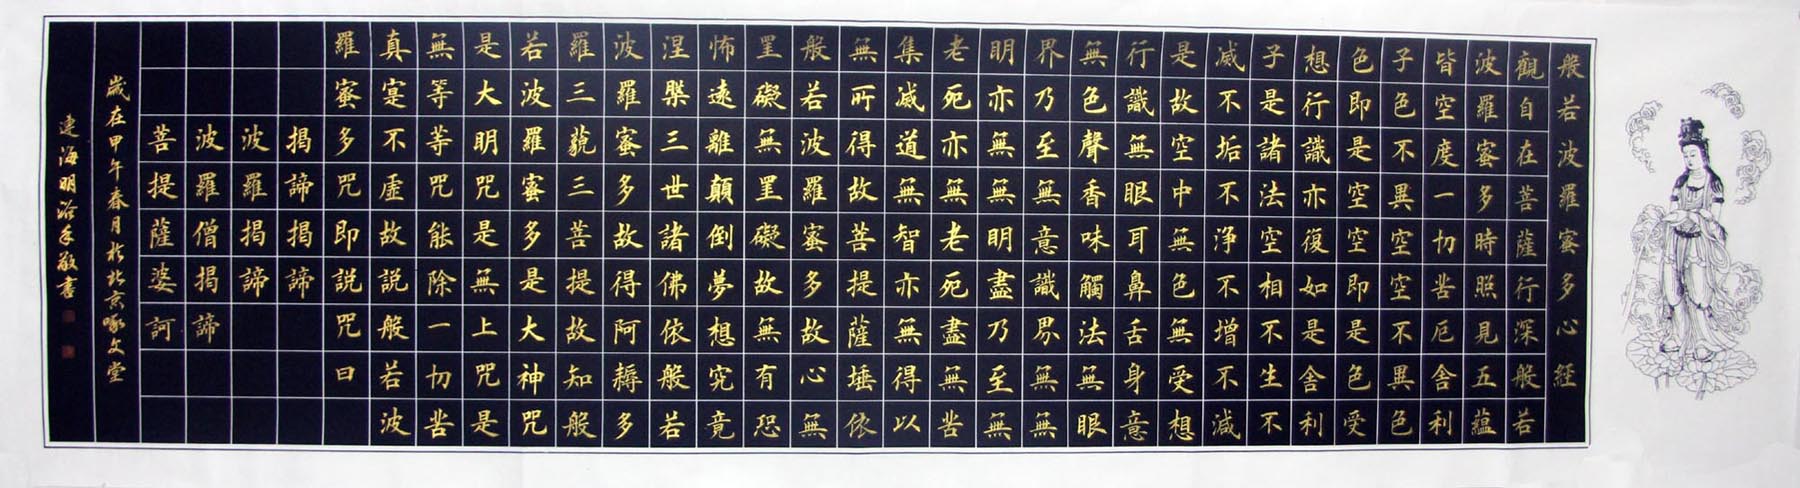 般若波羅蜜多心經
觀自在菩薩行深般若
波羅蜜多時照見五蘊
皆空度一切苦厄舍利
子色不異空空不異色
色即是空空即是色受
想行識亦復如是舍利
子是諸法空相不生不
滅不垢不浄不增不減
是故空中無色無受想
行識無眼耳鼻舌身意
無色聲香味觸法無眼
界乃至無意識界無無
明亦無無明盡乃至無
老死亦無老死盡無苦
集滅道無智亦無得以
無所得故菩提薩埵依
般若波羅蜜多故心無
罣礙無罣礙故無有恐
怖遠離顛倒夢想究竟
涅槃三世諸佛依般若
波羅蜜多故得阿耨多
羅三藐三菩提故知般
若波羅蜜多是大神咒
是大明咒是無上咒是
無等等咒能除一切苦
真寔不虛故説般若波
羅蜜多咒即説咒曰
揭諦揭諦
波羅揭諦
波羅僧揭諦
菩提薩婆訶
歲在甲午春月於北京文堂
連海明浴手敬書